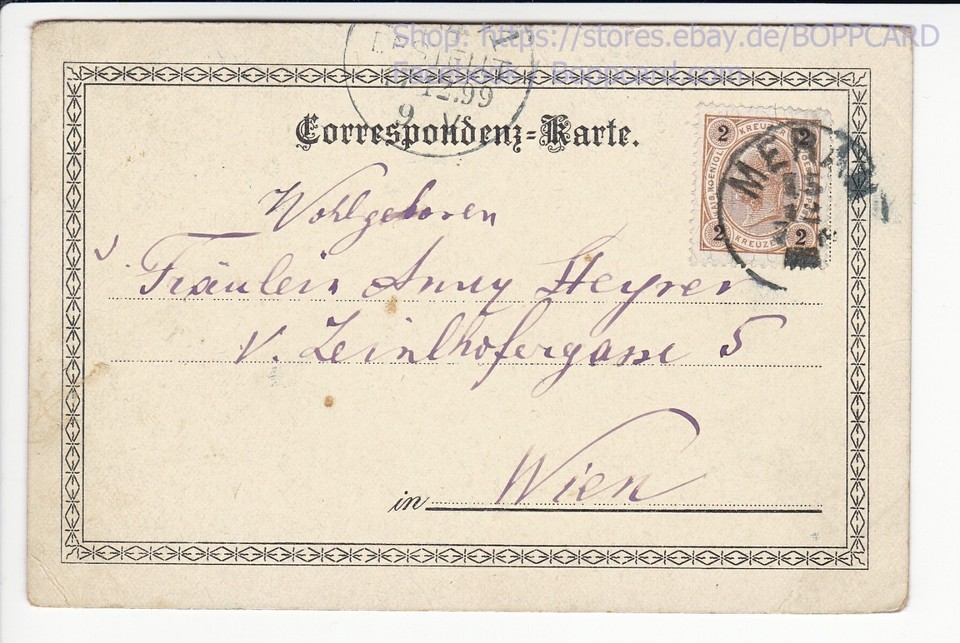 Shop: https://stores.ebay.de/BOPPCARD
12.99
9. V.
Correspondenz-Karte.
2 KREUZER 2
2 KREUZER 2
Wohlgeboren
Fräulein Anny Heyrer
V. Zeinlhofergasse 5
in Wien